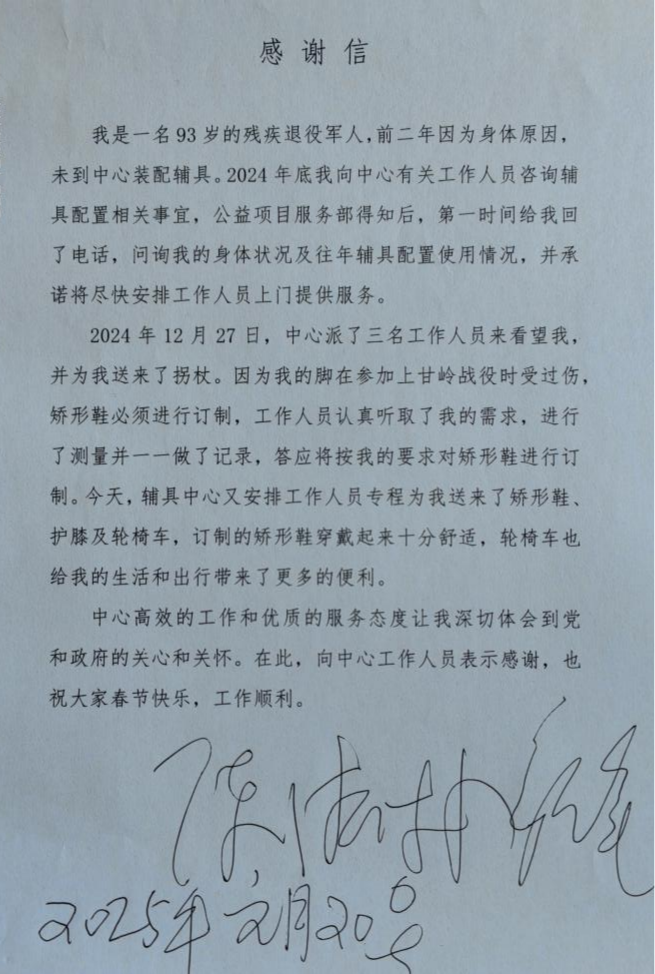 感谢信
我是一名93岁的残疾退役军人,前二年因为身体原因，
未到中心装配辅具。2024年底我向中心有关工作人员咨询辅
具配置相关事宜，公益项目服务部得知后，第一时间给我回
了电话，问询我的身体状况及往年辅具配置使用情况，并承
诺将尽快安排工作人员上门提供服务。
2024年12月27日，中心派了三名工作人员来看望我，
并为我送来了拐杖。因为我的脚在参加上甘岭战役时受过伤，
矫形鞋必须进行订制，工作人员认真听取了我的需求，进行
了测量并一一做了记录，答应将按我的要求对矫形鞋进行订
制。今天，辅具中心又安排工作人员专程为我送来了矫形鞋、
护膝及轮椅车，订制的矫形鞋穿戴起来十分舒适，轮椅车也
给我的生活和出行带来了更多的便利。
中心高效的工作和优质的服务态度让我深切体会到党
和政府的关心和关怀。在此，向中心工作人员表示感谢，也
祝大家春节快乐，工作顺利。
2025年元月20号